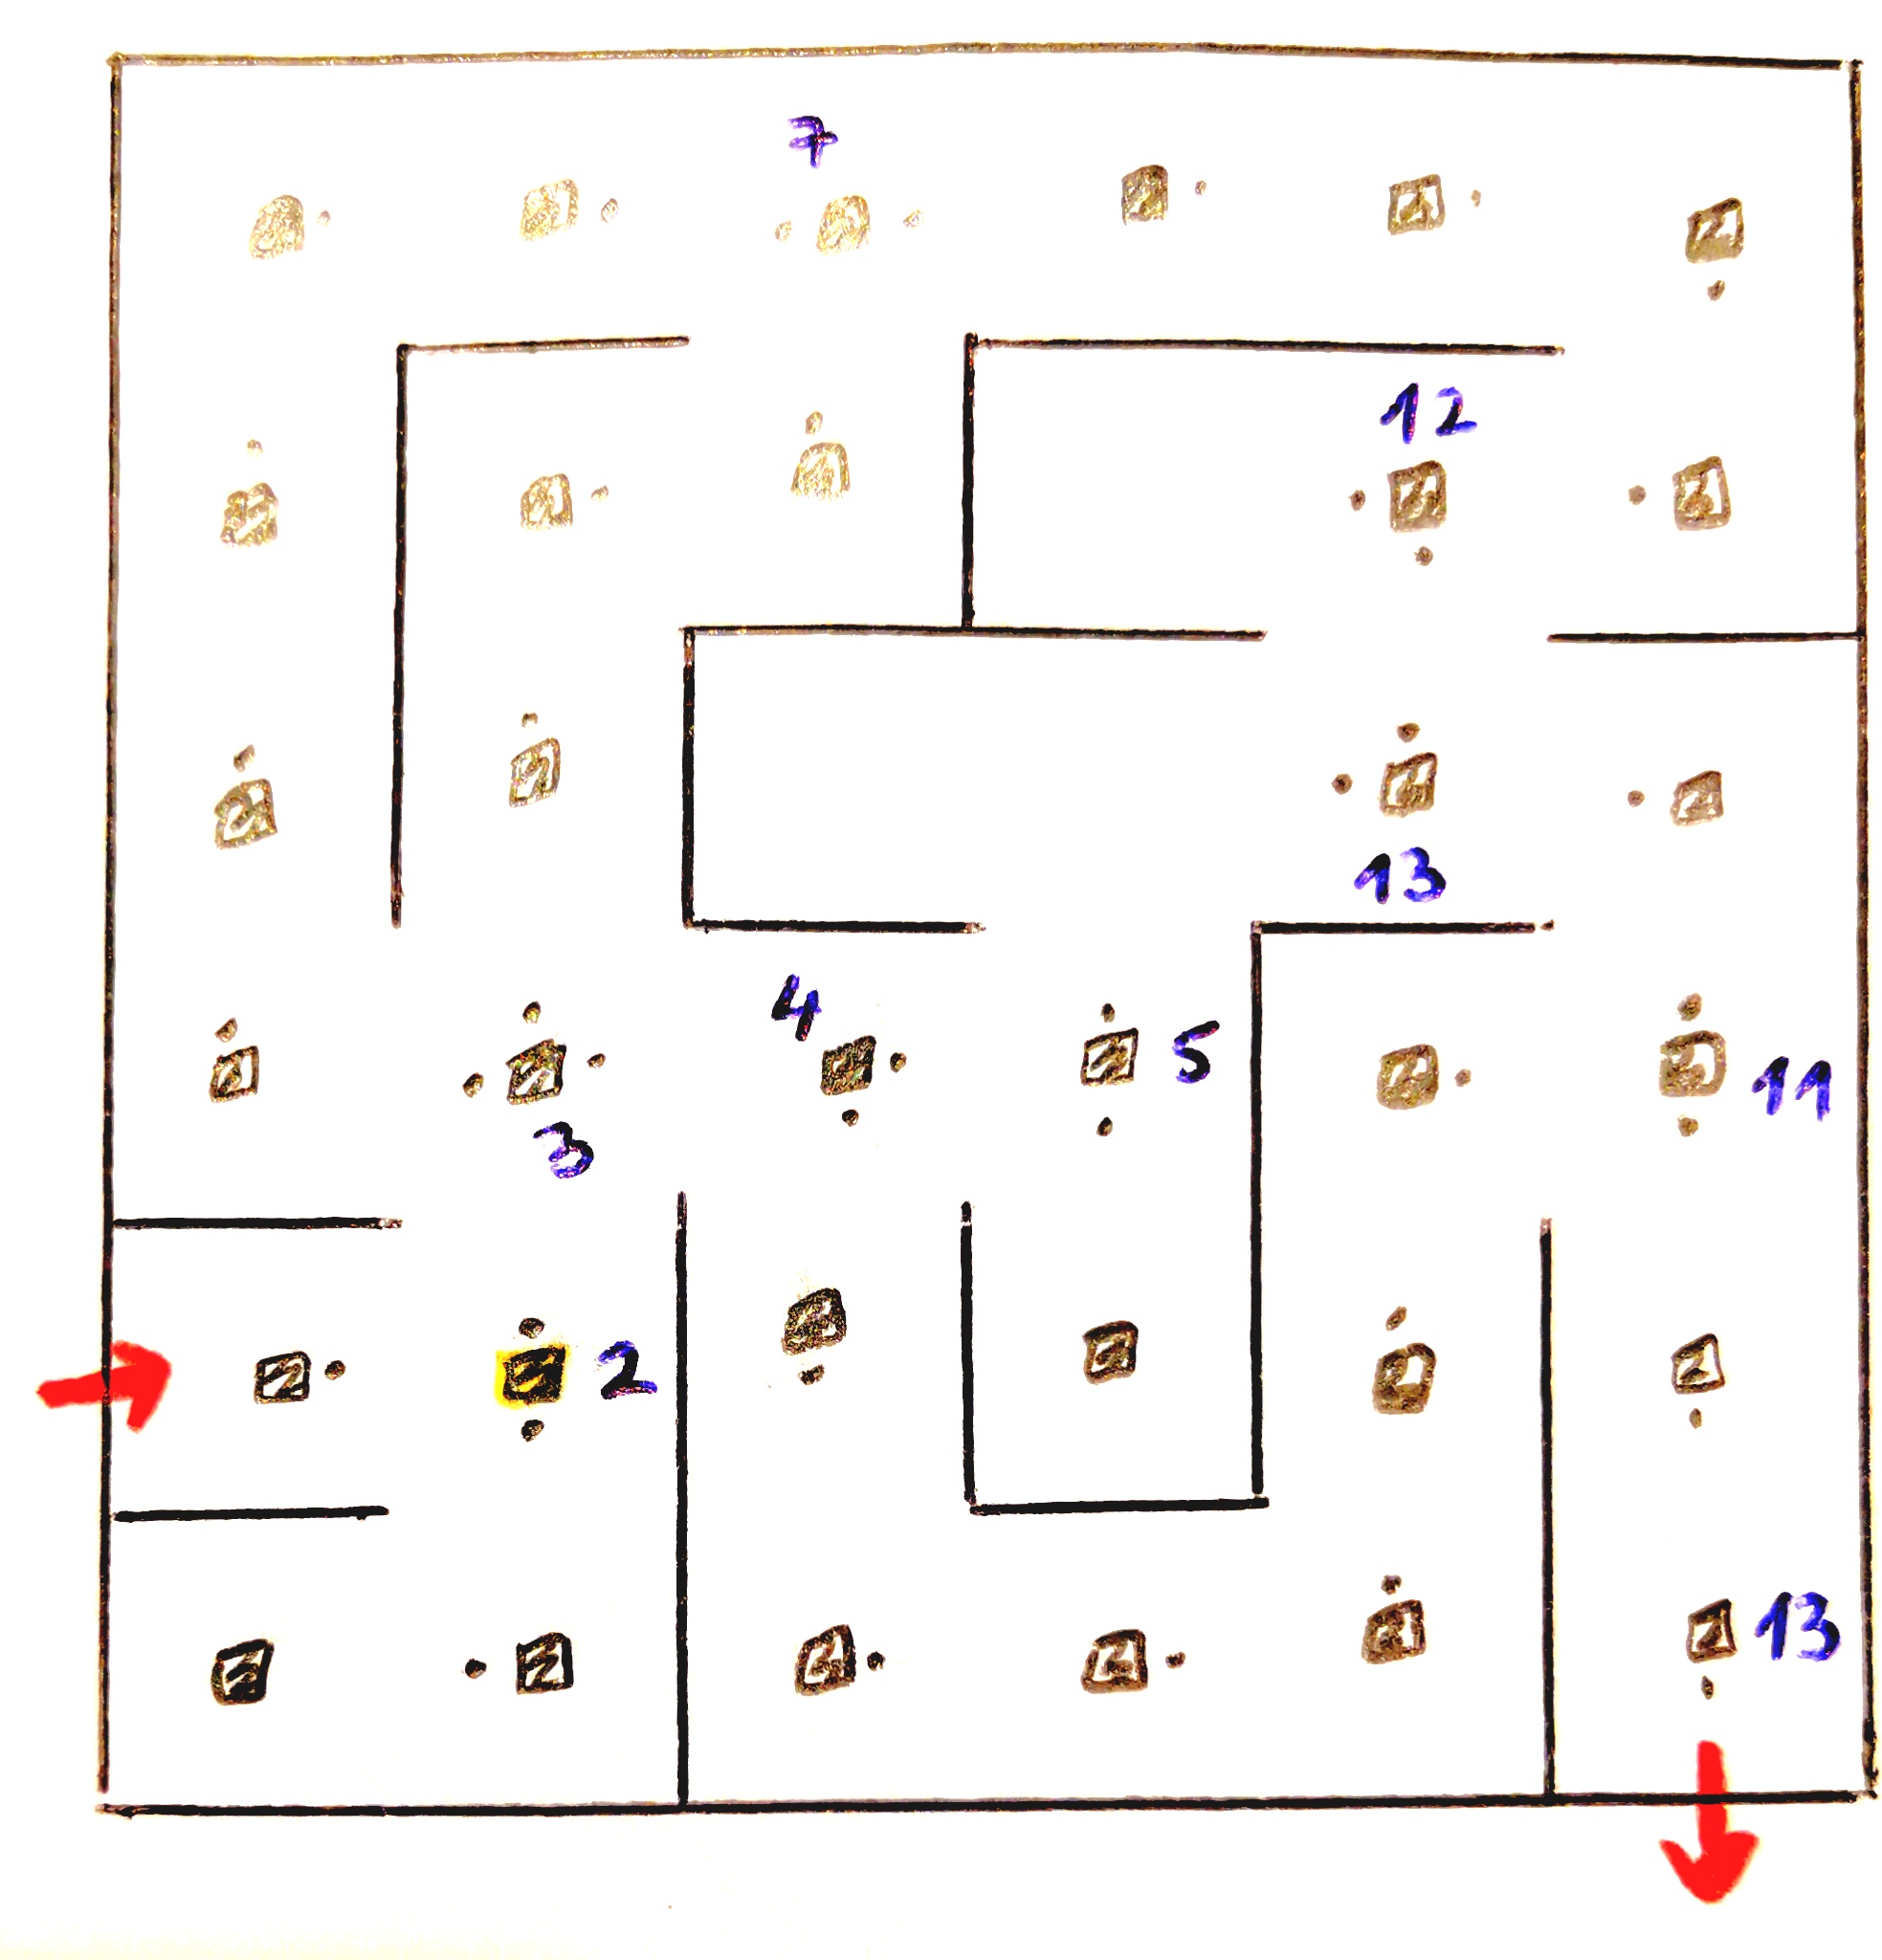 7
12
13
4
5
3
11
2
13